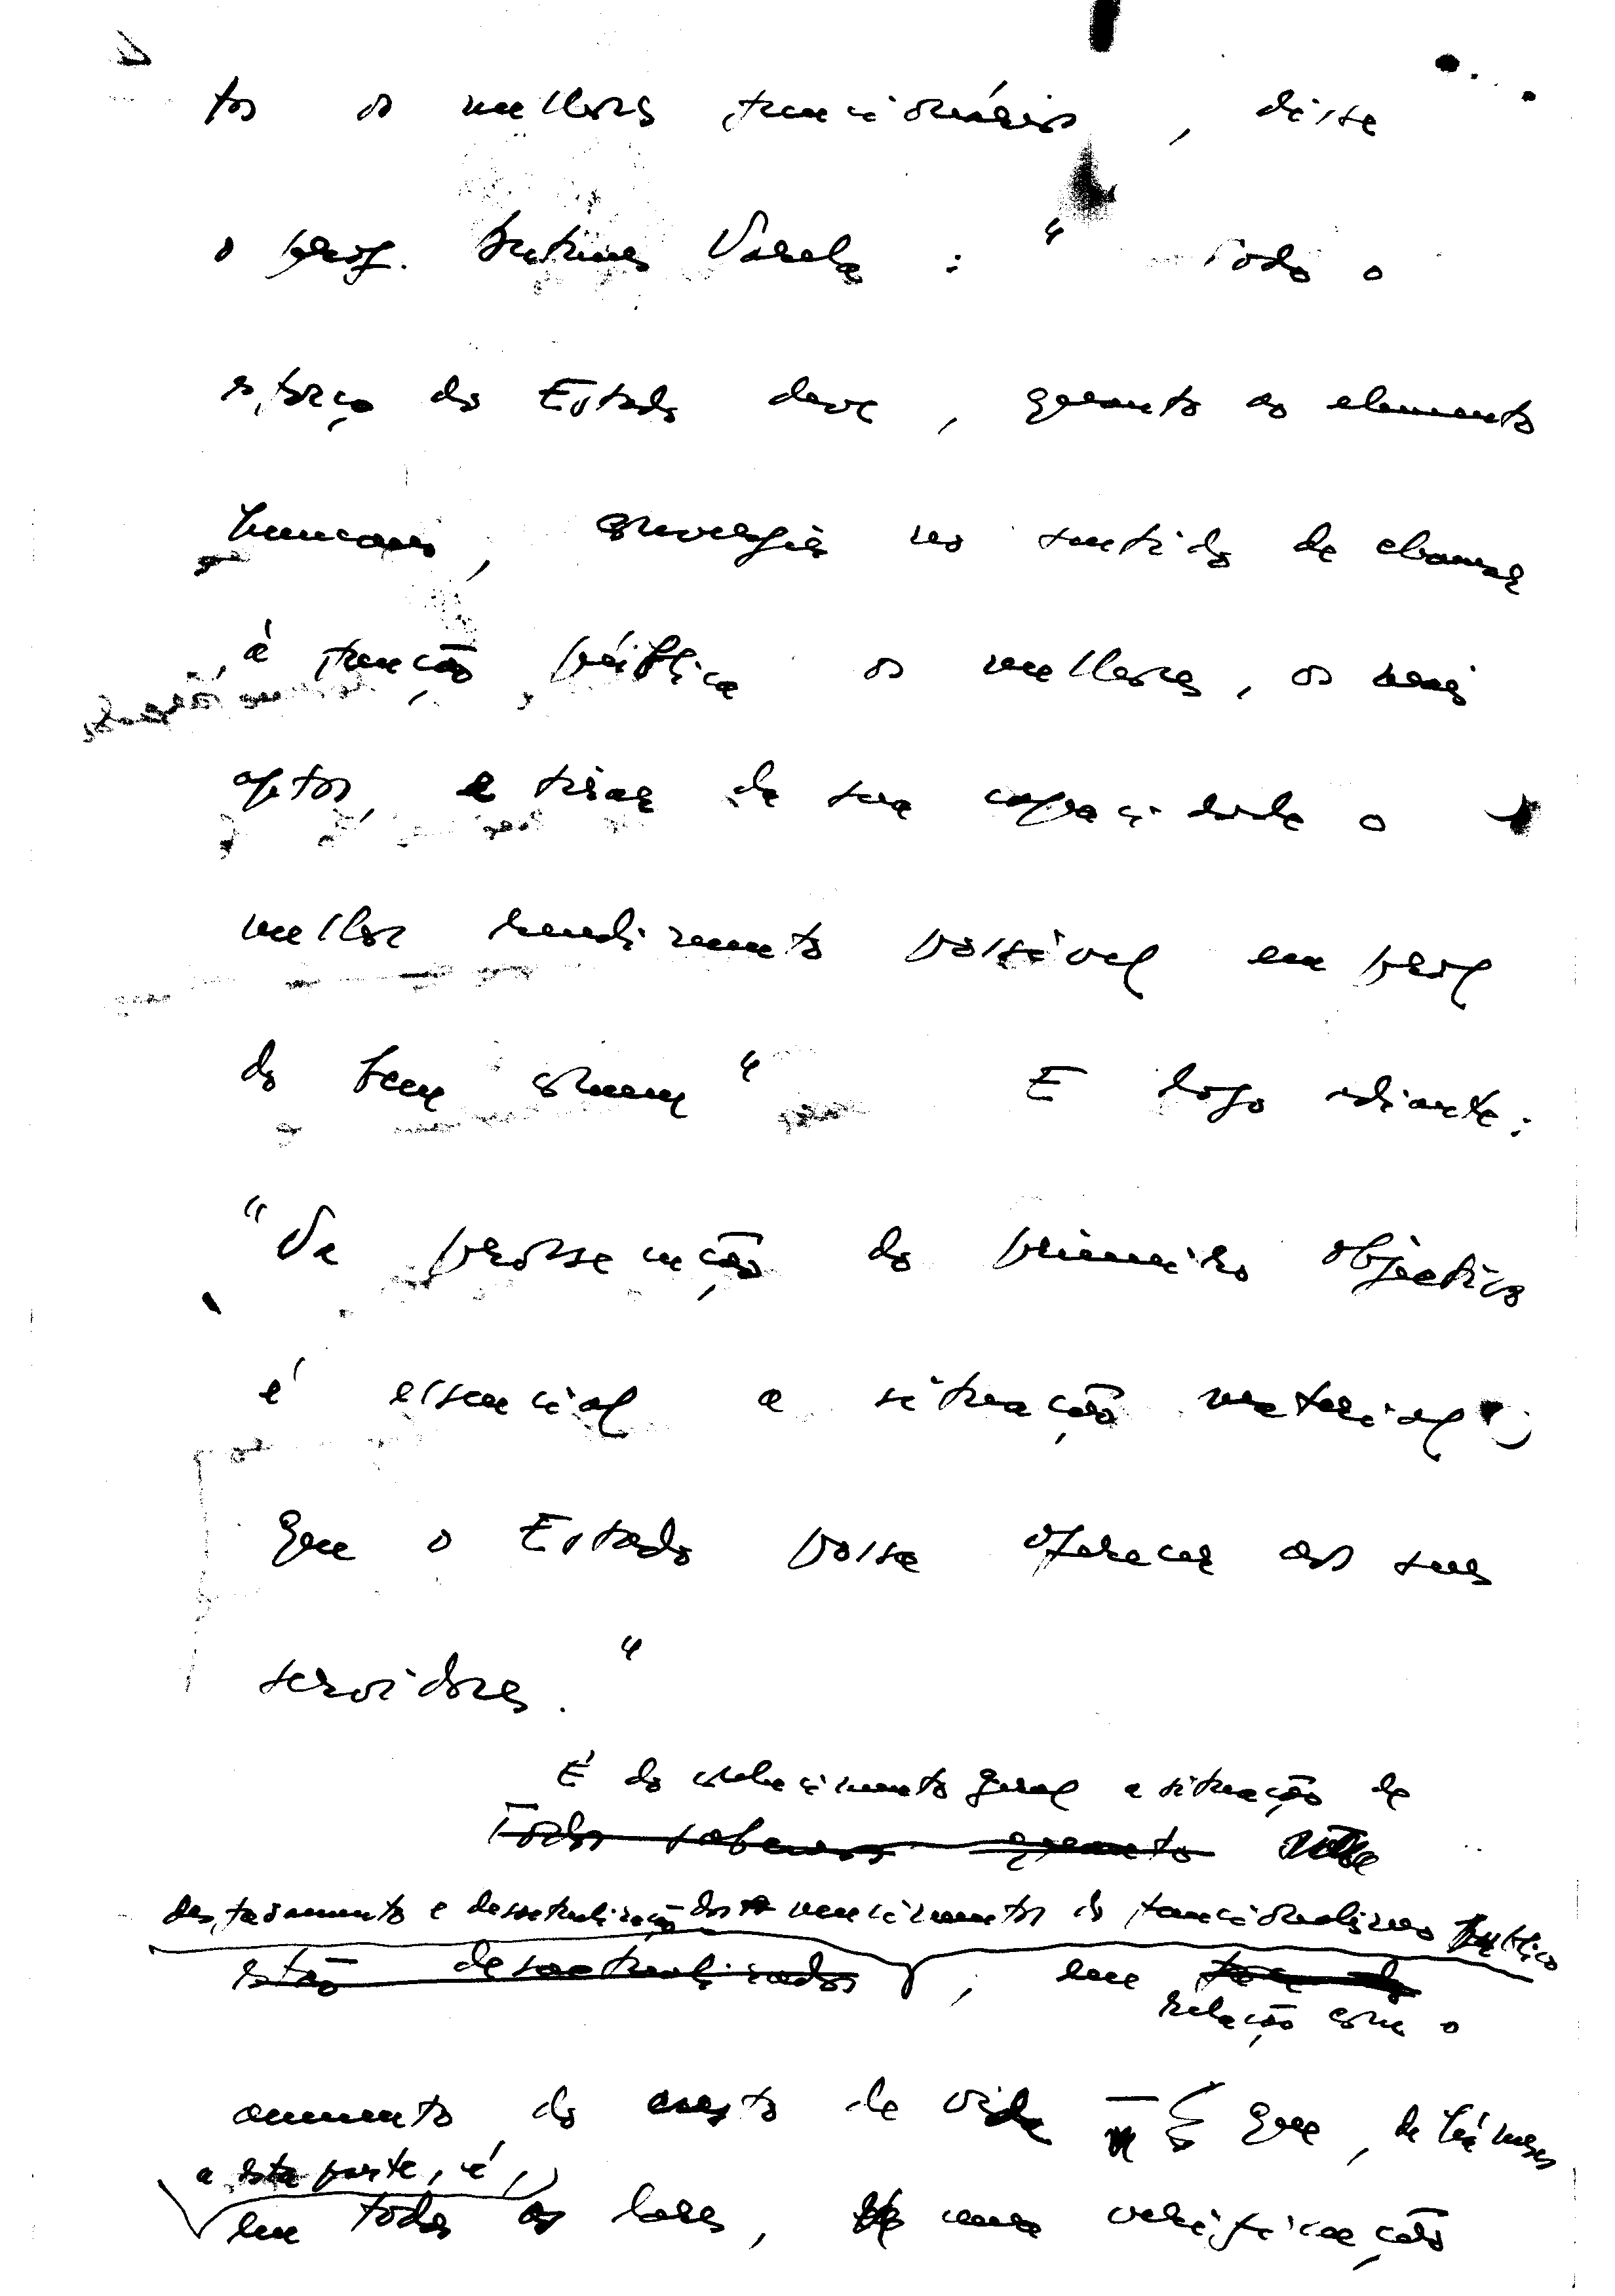 tos os melhores funcionários, disse
o prof. Antunes Varela : " Todo o
esforço do Estado deve, quanto ao elemento
humano, convergir no sentido de chamar
à função pública os melhores, os mais
aptos, e tirar da sua capacidade o
melhor rendimento possível em prol
do bem comum " E logo adiante:
"Na prossecução do primeiro objectivo
é essencial a situação material
que o Estado possa oferecer aos seus
servidores. "
É do conhecimento geral a situação de
Todos sabemos quanto
desfasamento e desactualização dos vencimentos do funcionalismo público
estão desactualizados, em
relação com o
aumento do custo de vida que, de há meses
a esta parte, é,
em todos os lares, uma verificação